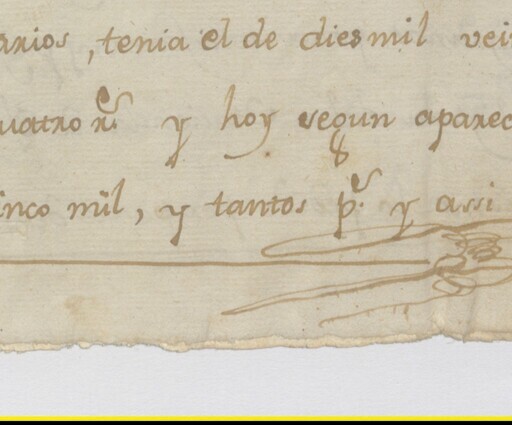 arios, tenia el de diesmil vei
uatro r.s y hoy segun aparec
inco mil, y tantos p.s y assi